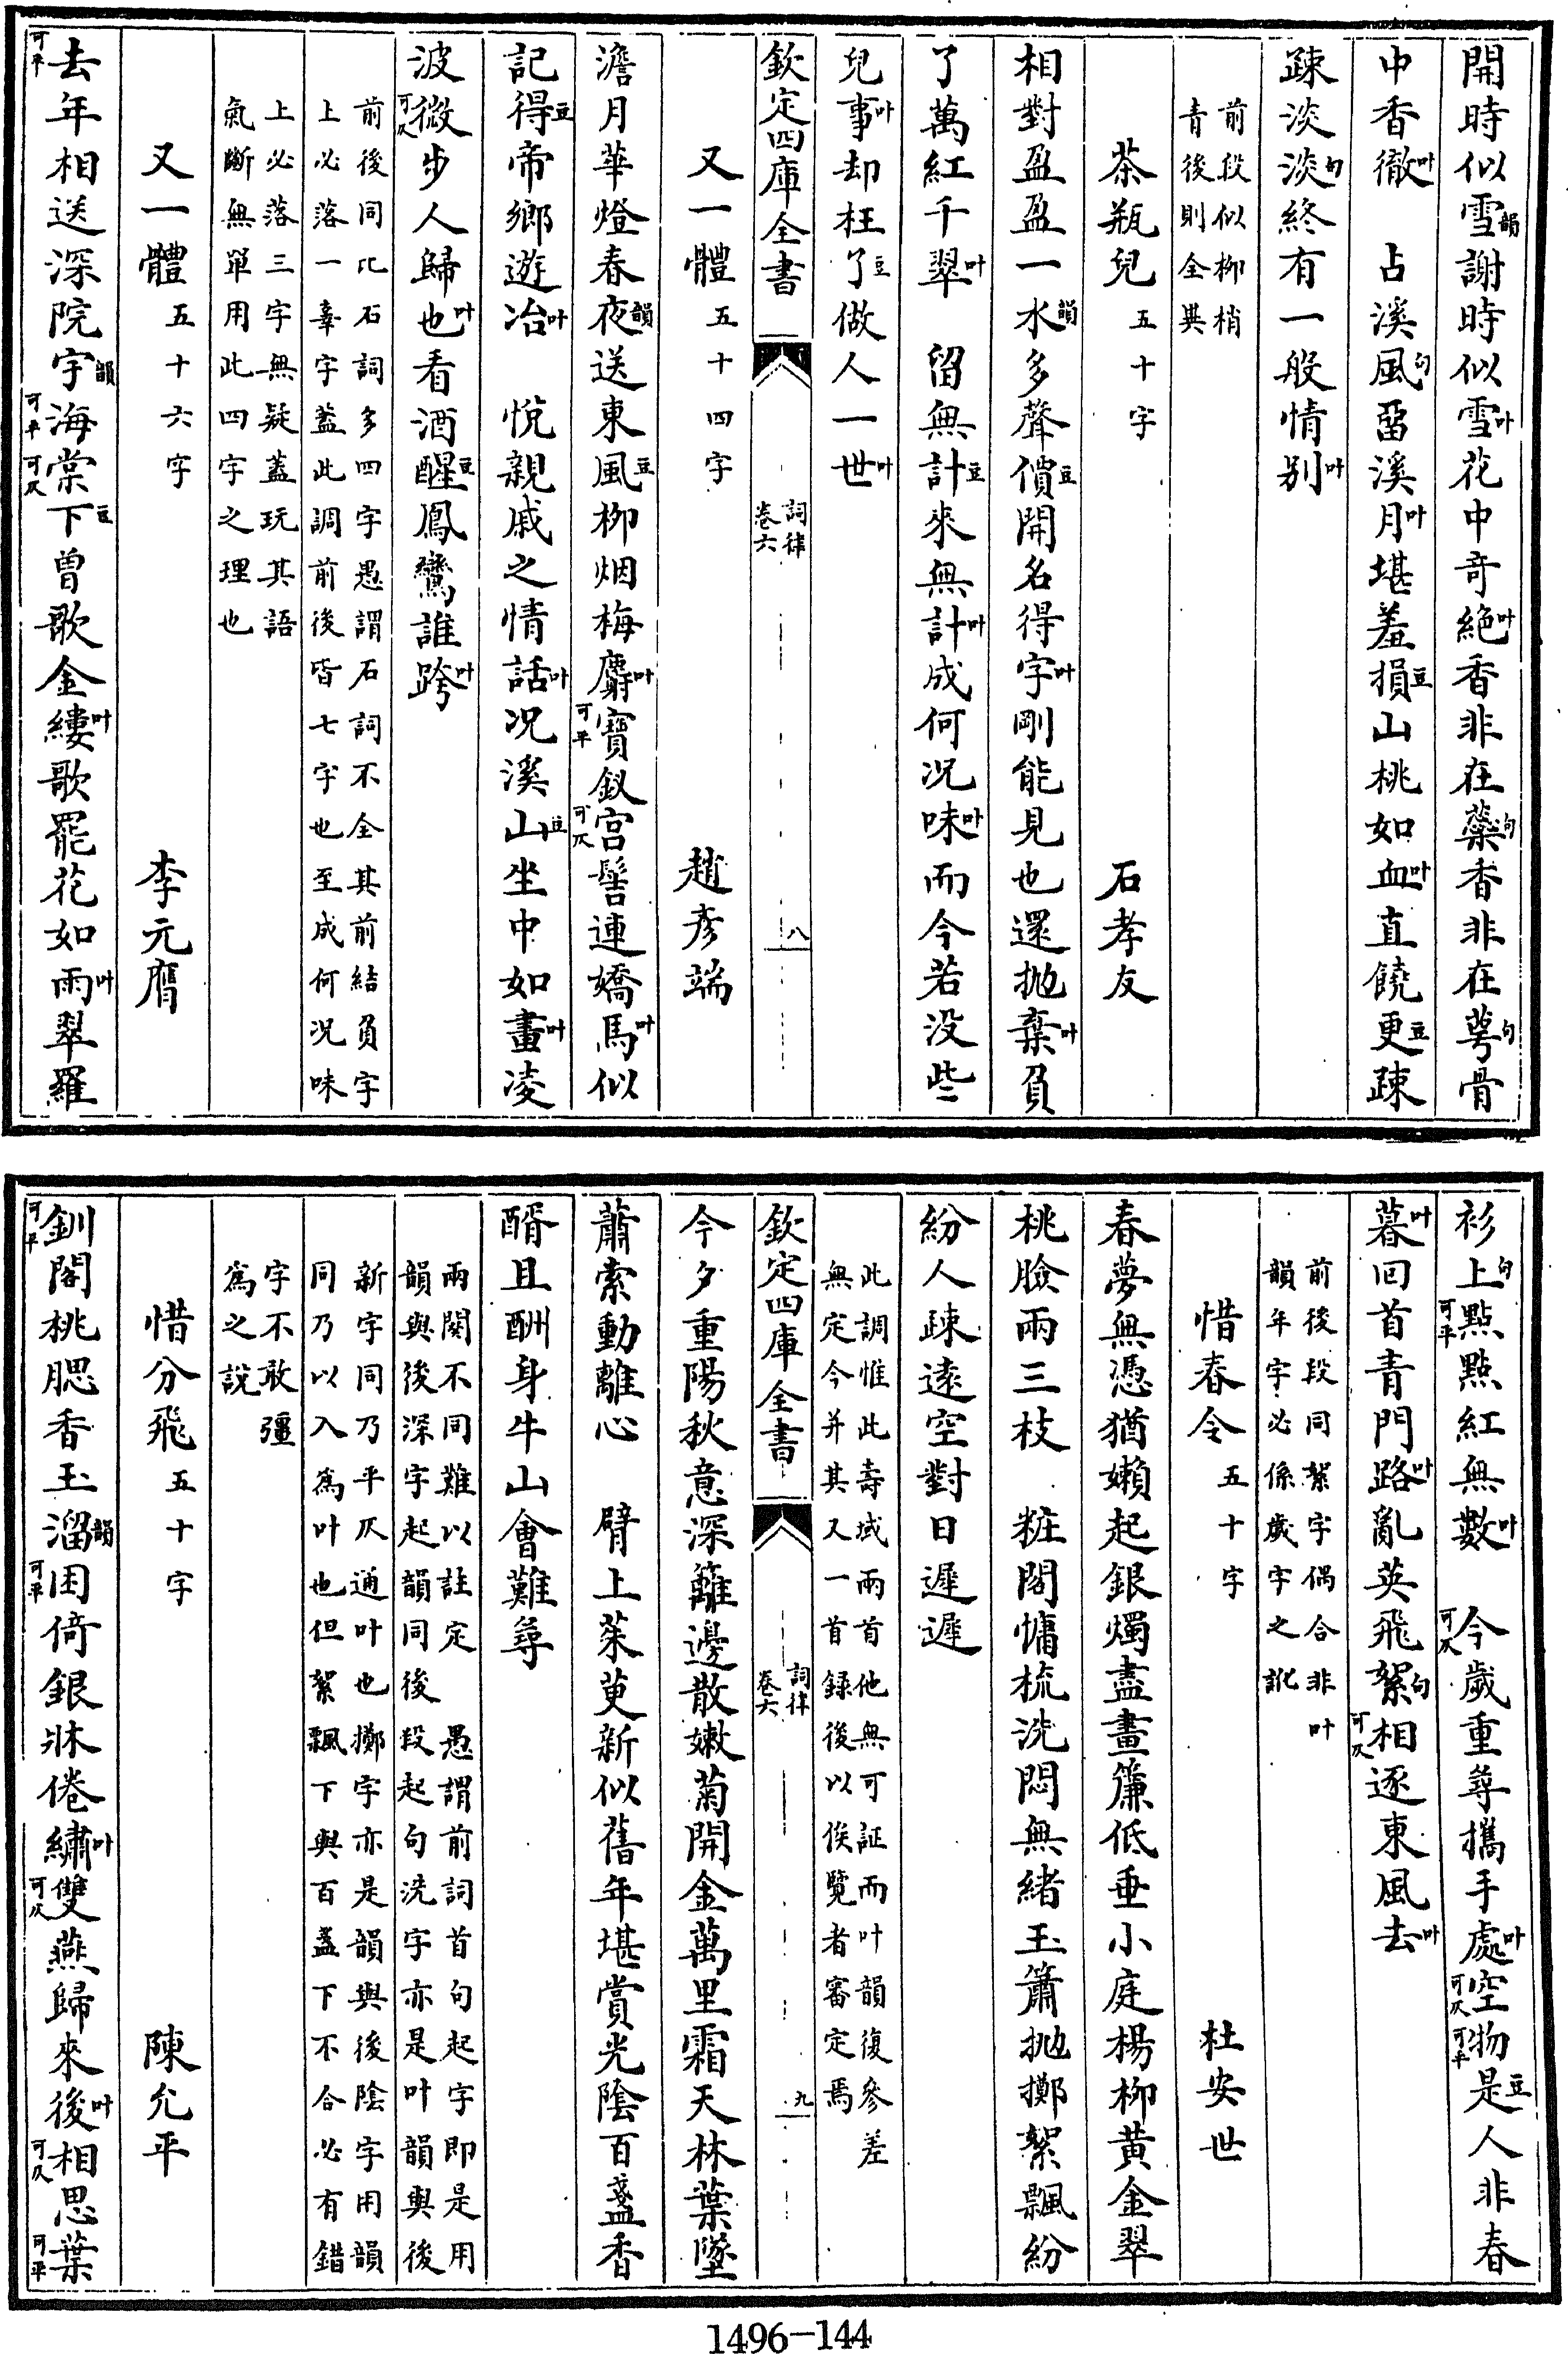 開時似雪韻謝時似雪叶花中奇絶叶香非在蘂句香非在萼句骨
中香徹叶　占溪風句畱溪月叶堪羞損豆山桃如血叶直饒更豆疎
疎淡淡句終有一般情别叶
前段似柳梢
青後則全異
茶瓶兒五十字　石孝友
相對盈盈一水韻多聲價豆開名得字叶剛能見也還抛棄叶負
了萬紅千翠叶　留無計豆來無計叶成何况味叶而今若没些
兒事叶却枉了豆做人一世叶
欽定四庫全書
詞律
卷六
八
又一體五十四字　趙彥端
澹月華燈春夜韻送東風豆柳烟梅麝叶可平寶釵可仄宫髻連嬌馬叶似
記得豆帝鄉遊冶叶　悅親戚之情話叶况溪山豆坐中如畫叶凌
波可仄微步人歸也叶看酒醒豆鳳鸞誰跨叶
前後同比石詞多四字愚謂石詞不全其前結負字
上必落一辜字蓋此調前後皆七字也至成何况味
上必落三字無疑蓋玩其語
氣斷無單用此四字之理也
又一體五十六字　李元膺
可平去年相送深院宇韻可平海可仄棠下豆曾歌金縷叶歌罷花如雨叶翠羅
衫上句可平點點紅無數叶　可仄今歲重尋攜手處叶可仄空可平物是豆人非春
暮叶回首青門路叶亂英飛絮句可仄相逐東風去叶
前後段同絮字偶合非叶
韻年字必係歲字之訛
惜春令五十字　杜安世
春夢無憑猶嬾起銀燭盡畫簾低垂小庭楊柳黄金翠
桃臉兩三枝　粧閣慵梳洗悶無緒玉簫抛擲絮飄紛
紛人疎遠空對日遲遲
此調惟此壽域兩首他無可証而叶韻復參差
無定今并其又一首録後以俟覽者審定焉
欽定四庫全書
詞律
卷六
九
今夕重陽秋意深籬邊散嫩菊開金萬里霜天林葉墜
蕭索動離心　臂上茱萸新似舊年堪賞光陰百盞香
醑且酬身牛山會難尋
兩闋不同難以註定　愚謂前詞首句起字即是用
韻與後深字起韻同後段起句洗字亦是叶韻與後
新字同乃平仄通叶也擲字亦是韻與後陰字用韻
同乃以入為叶也但絮飄下與百盞下不合必有錯
字不敢彊
為之說
惜分飛五十字　陳允平
可平釧閣桃腮香玉溜韻可平困倚銀牀倦繡叶可仄雙燕歸來後叶可仄相思可平葉
1496-144